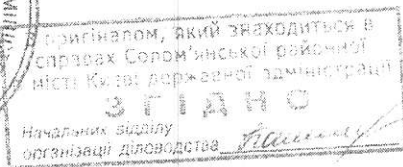 оригіналом, який знаходиться в
справах Солом'янської районної
в місті Києві державної адміністрації
ЗГІДНО
Начальник відділу
організації діловодства